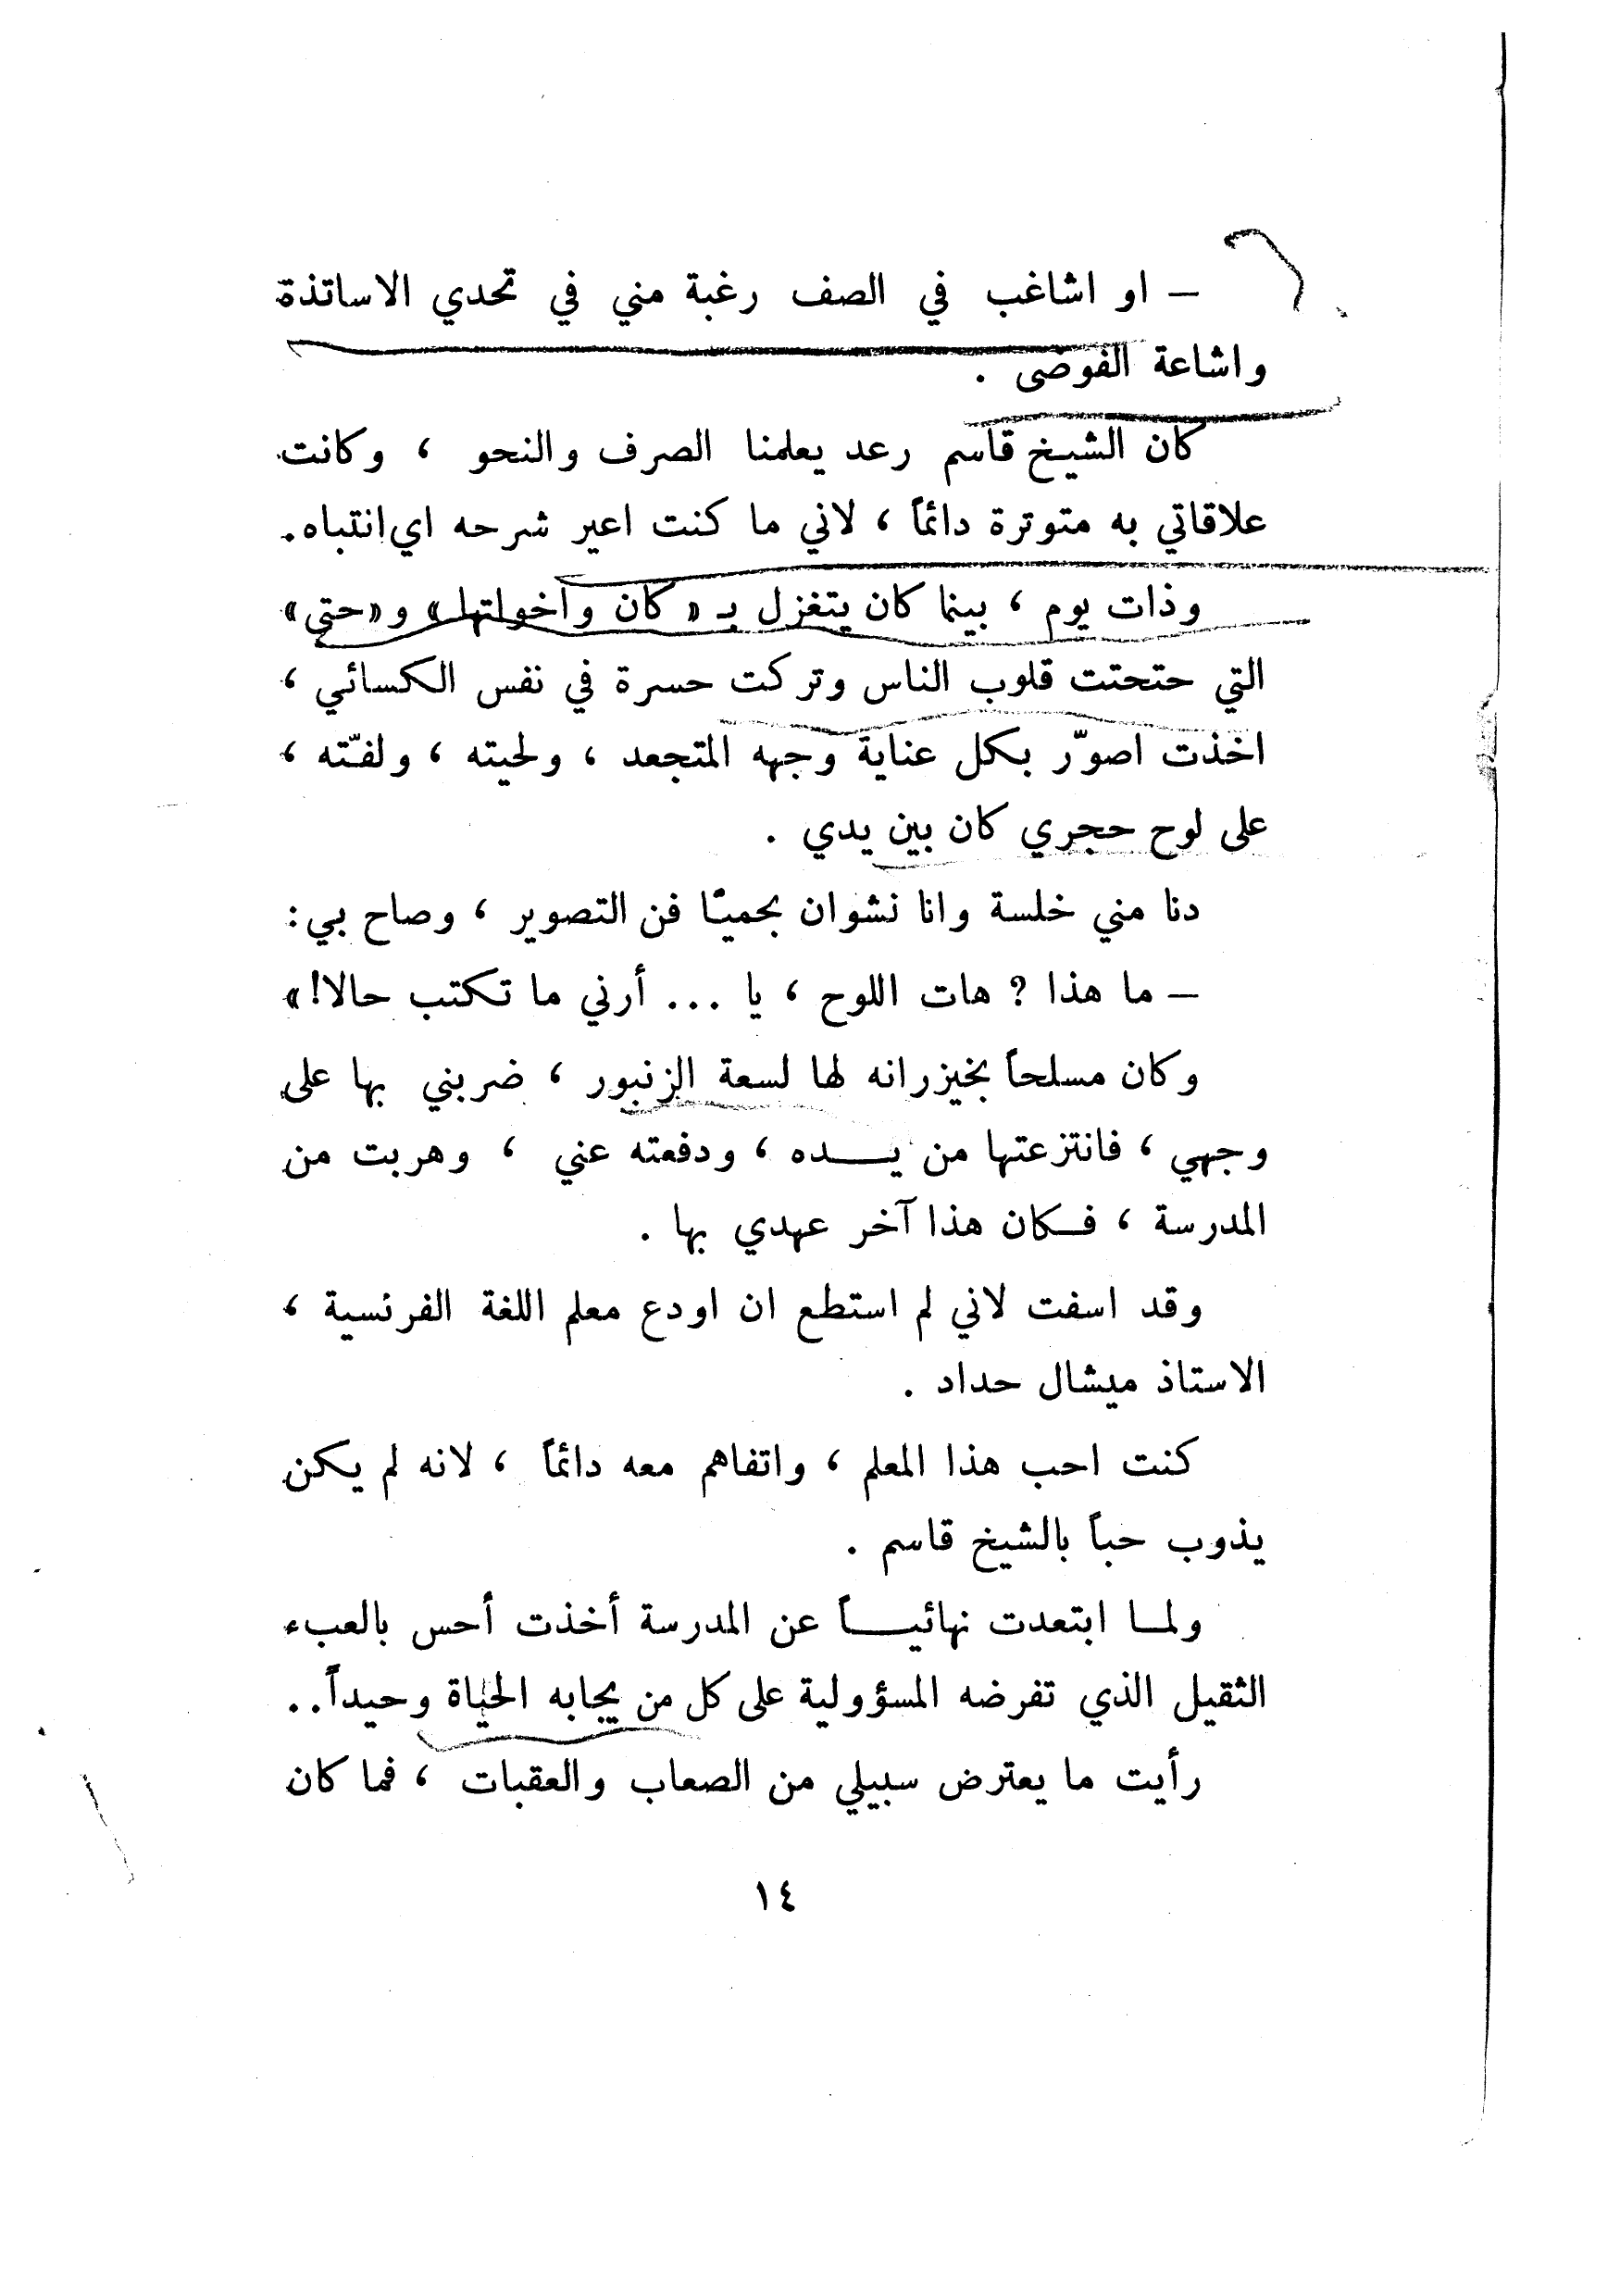 – او اشاغب في الصف رغبة مني في تحدي الاساتذة
واشاعة الفوضى .
كان الشيخ قاسم رعد يعلمنا الصرف والنحو ، وكانت
علاقاتي به متوترة دائماً ، لاني ما كنت اعير شرحه اي انتباه .
وذات يوم ، بينما كان يتغزل بـ « كان واخواتها » و«حتى»
التي حتحتت قلوب الناس وتركت حسرة في نفس الكسائي ،
اخذت اصوّر بكل عناية وجهه المتجعد ، ولحيته ، ولفّته ،
على لوح حجري كان بين يدي .
دنا مني خلسة وانا نشوان بحميّا فن التصوير ، وصاح بي :
– ما هذا ? هات اللوح ، يا ... أرني ما تكتب حالا! »
وكان مسلحاً بخيزرانه لها لسعة الزنبور ، ضربني بها على
وجهي ، فانتزعتها من يــده ، ودفعته عني ، وهربت من
المدرسة ، فكان هذا آخر عهدي بها .
وقد اسفت لاني لم استطع ان اودع معلم اللغة الفرنسية ،
الاستاذ ميشال حداد .
كنت احب هذا المعلم ، واتفاهم معه دائماً ، لانه لم يكن
يذوب حباً بالشيخ قاسم .
ولمـا ابتعدت نهائيـــاً عن المدرسة أخذت أحس بالعبء
الثقيل الذي تفرضه المسؤولية على كل من يجابه الحياة وحيداً ..
رأيت ما يعترض سبيلي من الصعاب والعقبات ، فما كان
١٤